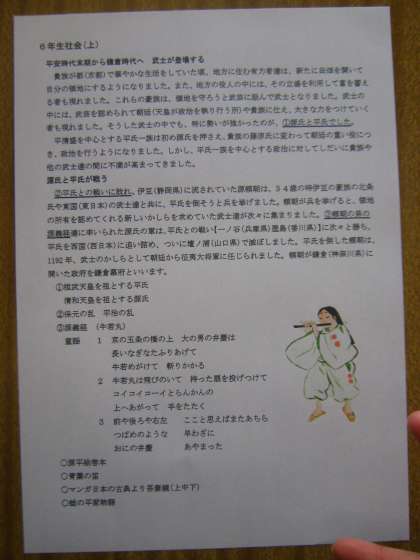 ６年生社会（上）
平安時代末期から鎌倉時代へ　武士が登場する
貴族が都（京都）で華やかな生活をしていた頃、地方に住む有力者達は、新たに田畑を開いて
自分の領地にするようになりました。また、地方の役人の中には、その立場を利用して富を蓄え
る者も現れました。これらの豪族は、領地を守ろうと武芸に励んで武士となりました。武士の
中には、武芸を認められて朝廷（天皇が政治を執り行う所）や貴族に仕え、大きな力をつけていく
者も現れました。そうした武士の中でも、特に勢いが強かったのが、①源氏と平氏でした。
平清盛を中心とする平氏一族は初め源氏を押さえ、貴族の藤原氏に変わって朝廷の重い役につ
き、政治を行うようになりました。しかし、平氏一族を中心とする政治に対してしだいに貴族や
他の武士達の間に不満が高まってきました。
源氏と平氏が戦う
②平氏との戦いに敗れ、伊豆（静岡県）に流されていた源頼朝は、３４歳の時伊豆の豪族の北条
氏や東国（東日本）の武士達と共に、平氏を倒そうと兵を挙げました。頼朝が兵を挙げると、領地
の所有を認めてくれる新しいかしらを求めていた武士達が次々に集まりました。③頼朝の弟の
源義経達に率いられた源氏の軍は、平氏との戦い【一ノ谷（兵庫県）屋島（香川県）】に次々と勝ち、
平氏を西国（西日本）に追い詰め、ついに壇ノ浦（山口県）で滅ぼしました。平氏を倒した頼朝は、
1192年、武士のかしらとして朝廷から征夷大将軍に任じられました。頼朝が鎌倉（神奈川県）に
開いた政府を鎌倉幕府といいます。
①桓武天皇を祖とする平氏
清和天皇を祖とする源氏
②保元の乱　平治の乱
③源義経　（牛若丸）
童謡　１　京の五条の橋の上　大の男の弁慶は
長いなぎなたふりあげて
牛若めがけて　斬りかかる
２　牛若丸は飛びのいて　持った扇を投げつけて
コイコイコーイとらんかんの
上へあがって　手をたたく
３　前や後ろや右左　ここと思えばまたあちら
つばめのような　早わざに
おにの弁慶　あやまった
〇源平絵巻本
〇青葉の笛
〇マンガ日本の古典より吾妻鏡（上中下）
〇絵の平家物語